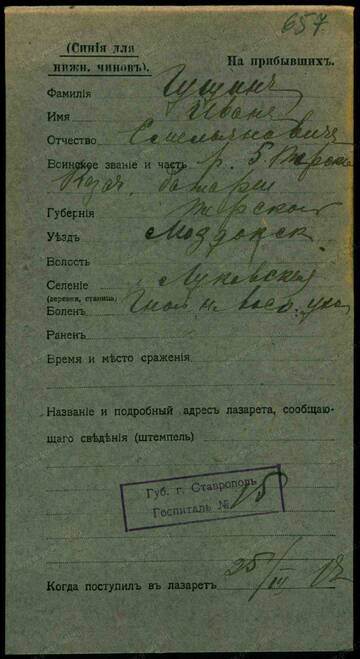 657.
(Синія для
нижн. чиновъ).
На прибывшихъ.
Фамилія Гущинъ
Имя Иванъ
Отчество Емельяновичъ
Воинское званіе и часть р. 5. Терск.
Казач. батареи
Губернія Терской
Уѣздъ Моздокск
Волость
Селеніе Луковская
(деревня, станица)
Боленъ Гной. н. восп. уха
Раненъ
Время и мѣсто сраженія
Названіе и подробный адресъ лазарета, сообщаю-
щаго свѣдѣнія (штемпель)
Губ. г. Ставрополь
Госпиталь № 15
Когда поступилъ въ лазаретъ 25/III